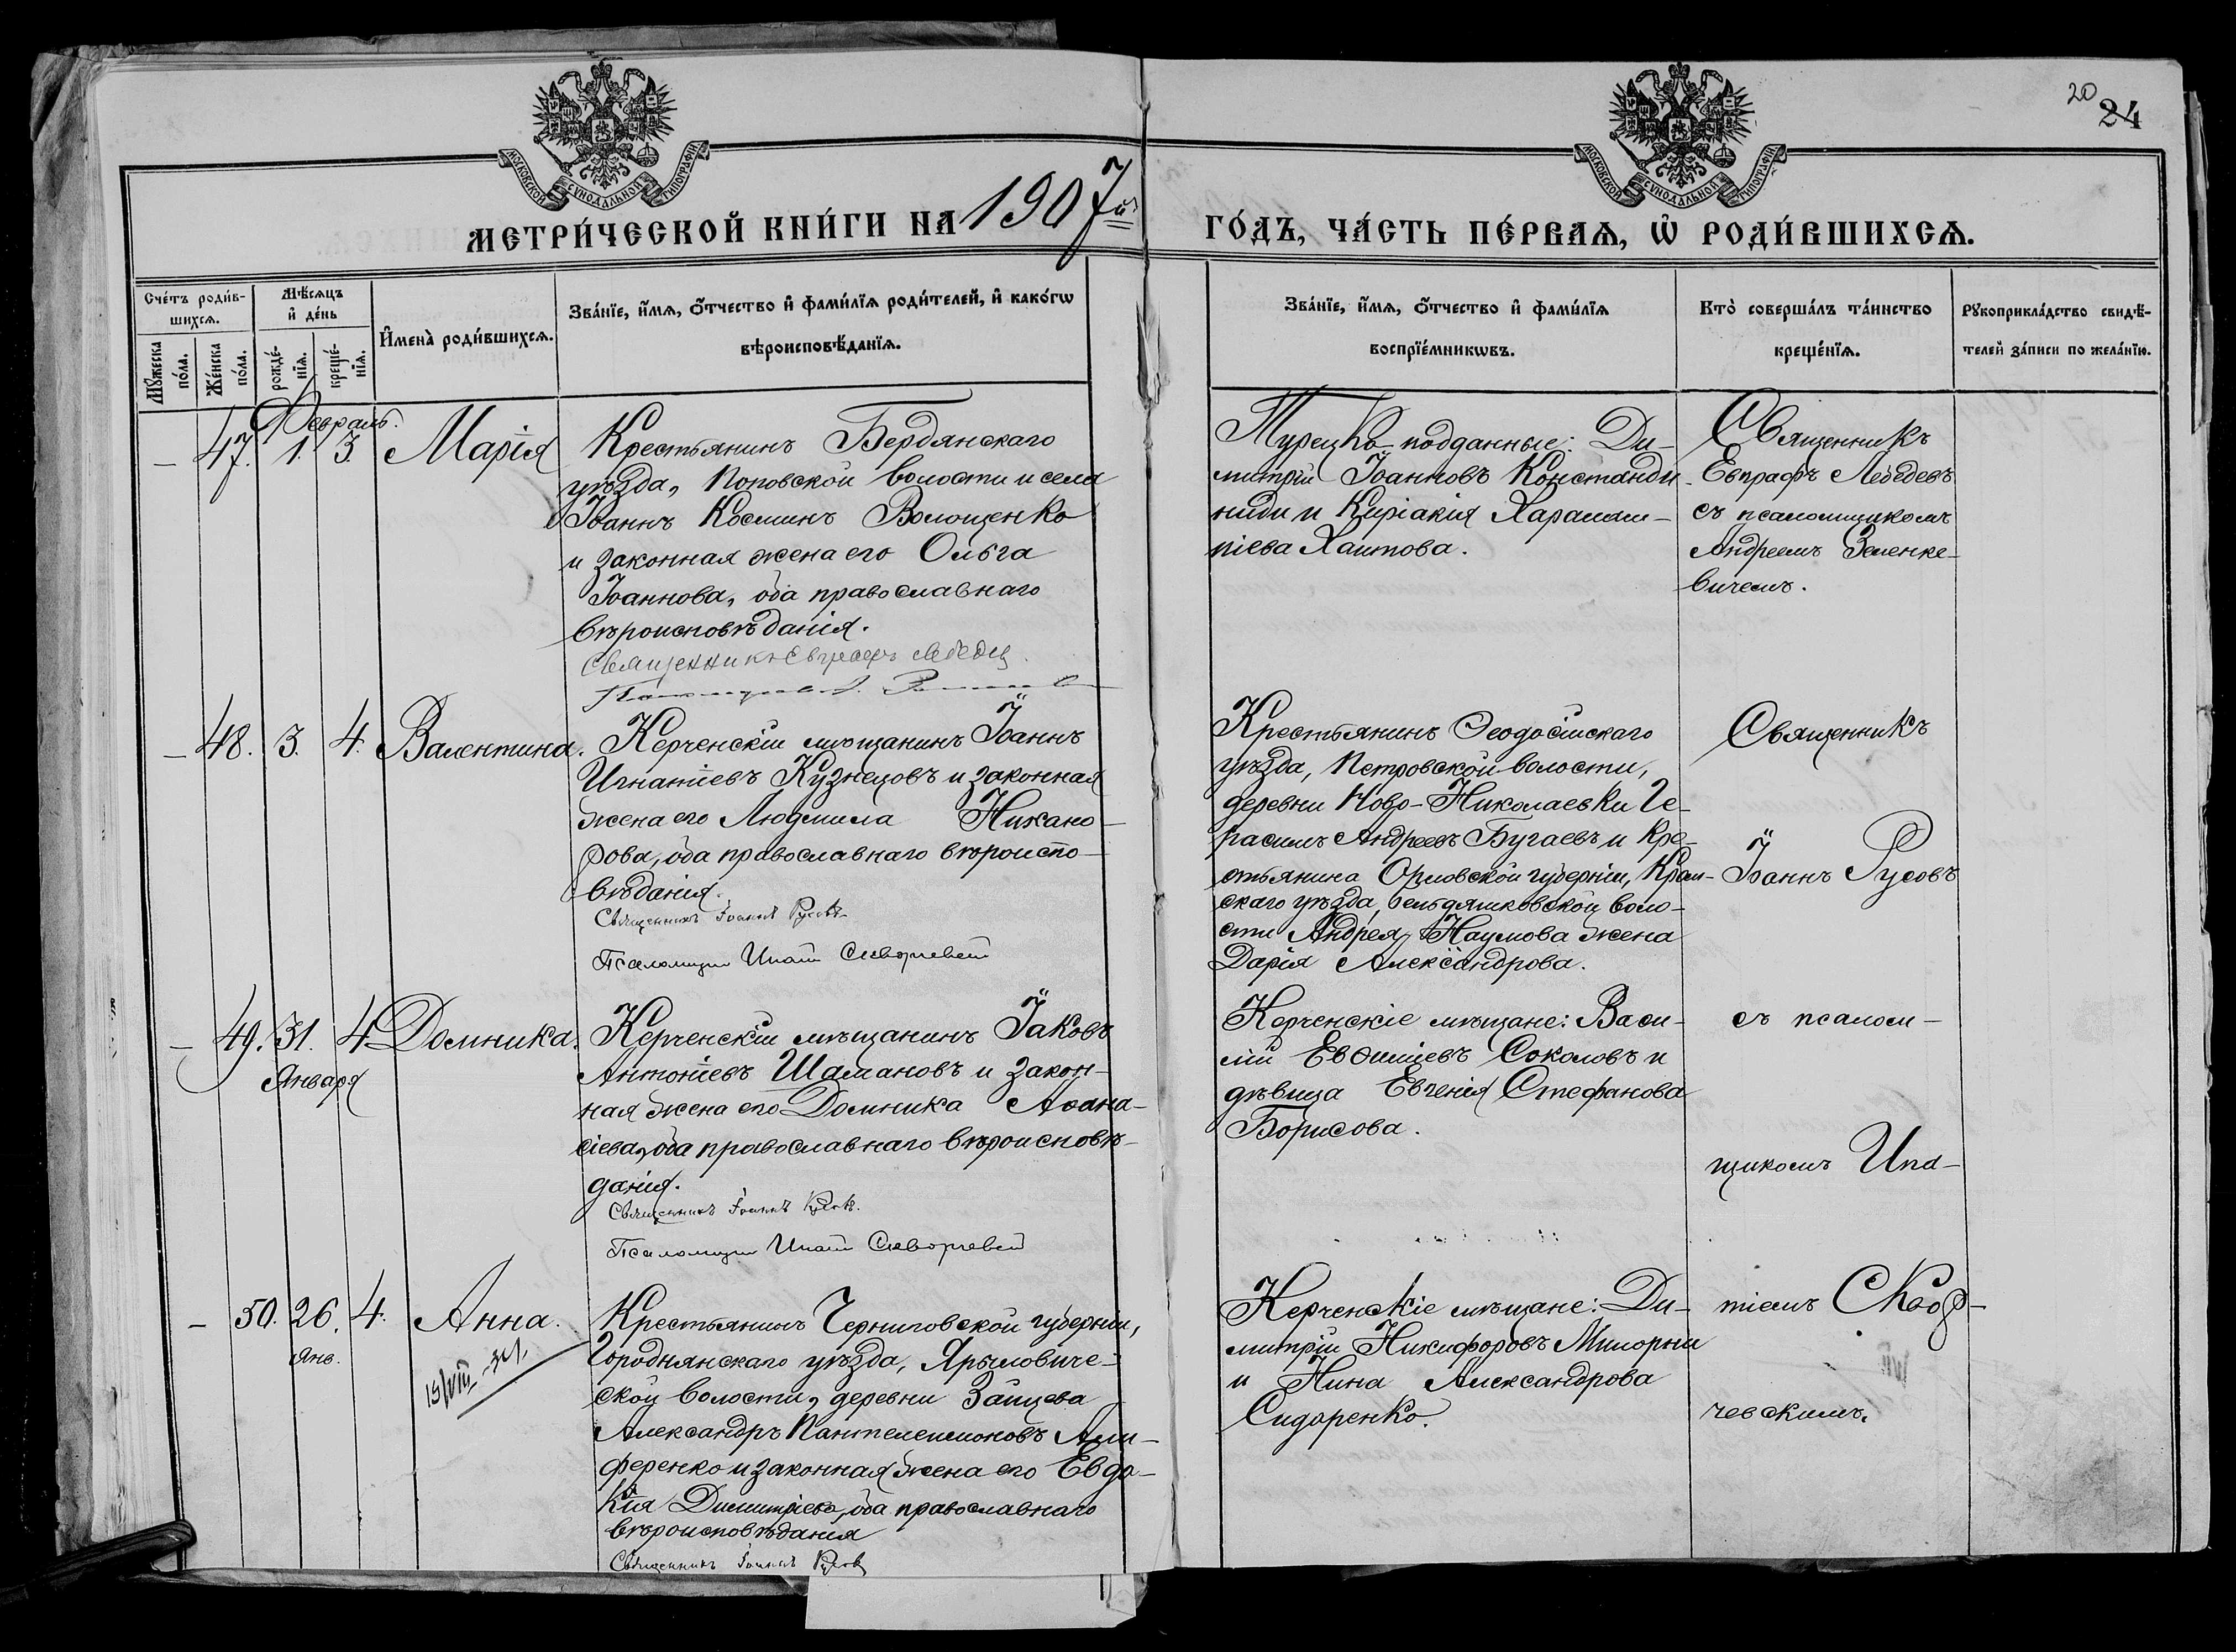 20
24
МОСКОВСКОЙ СѴНОДАЛЬНОЙ ТИПОГРАФІИ
МОСКОВСКОЙ СѴНОДАЛЬНОЙ ТИПОГРАФІИ
МЕТРИ́ЧЕСКОЙ КНИ́ГИ НА 1907й
ГО́ДЪ, ЧА́СТЬ ПЕ́РВАѦ, Ѡ҆ РОДИ́ВШИХСѦ.
Сче́тъ роди́в-
шихсѧ.
Мꙋ́жеска
по́ла.
Же́нска
по́ла.
Мѣ́сѧцъ
и҆ де́нь
рожде́-
нїѧ.
креще́-
нїѧ.
И҆мена̀ роди́вшихсѧ.
Зва́нїе, и҆́мѧ, ѻ҆́тчество и҆ фами́лїѧ роди́телей, и҆ како́гѡ
вѣроисповѣ́данїѧ.
Зва́нїе, и҆́мѧ, ѻ҆́тчество и҆ фами́лїѧ
воспрїе́мникѡвъ.
Кто̀ соверша́лъ та́инство
креще́нїѧ.
Рꙋкоприкла́дство свидѣ́-
телей за́писи по жела́нїю.
Февраль.
– 47. 1. 3. Марія
Крестьянинъ Бердянскаго
уѣзда, Поповской волости и села
Іоаннъ Косминъ Волощенко
и законная жена его Ольга
Іоаннова, оба православнаго
вѣроисповѣданія.
Священникъ Евграфъ Лебедев
Турецко-подданные: Ди-
митрій Іоанновъ Константи-
ниди и Киріакія Харалам-
піева Хаитова.
Священникъ
Евграфъ Лебедевъ
съ псаломщикомъ
Андреемъ Зеленке-
вичемъ.
– 48. 3. 4. Валентина.
Керченскій мѣщанинъ Іоаннъ
Игнатіевъ Кузнецовъ и законная
жена его Людмила Никано-
рова, оба православнаго вѣроиспо-
вѣданія.
Священникъ Іоаннъ Русовъ
Псаломщик Ипатій Скворчевскій
Крестьянинъ Ѳеодосійскаго
уѣзда, Петровской волости,
деревни Ново-Николаевки Ге-
расимъ Андреевъ Бугаевъ и кре-
стьянина Орловской губерніи, Кром-
скаго уѣзда, волo-
сти Андрея Наумова жена
Дарія Александрова.
Священникъ
Іоаннъ Русовъ
– 49. 31. 4. Домника.
Января
Керченскій мѣщанинъ Іаковъ
Антоніевъ Шамановъ и закон-
ная жена его Домника Аѳана-
сіева, оба православнаго вѣроисповѣ-
данія.
Священникъ Іоаннъ Русовъ.
Псаломщик Ипатій Скворчевскій
Керченскіе мѣщане: Васи-
лій Евѳиміевъ Соколовъ и
дѣвица Евгенія Стефанова
Борисова.
съ псалом-
щикомъ Ипа-
– 50. 26. 4. Анна.
Янв.
Крестьянинъ Черниговской губерніи,
Городнянскаго уѣзда, Ярыловиче-
ской волости, деревни Зайцева
Александръ Пантелеимоновъ Али-
ференко и законная жена его Евдо-
кія Димитріева, оба православнаго
вѣроисповѣданія
Священникъ Іоаннъ Русовъ
Керченскіе мѣщане: Ди-
митрій Никифоровъ
и Нина Александрова
Сидоренко.
тіемъ Сквор-
чевскимъ.